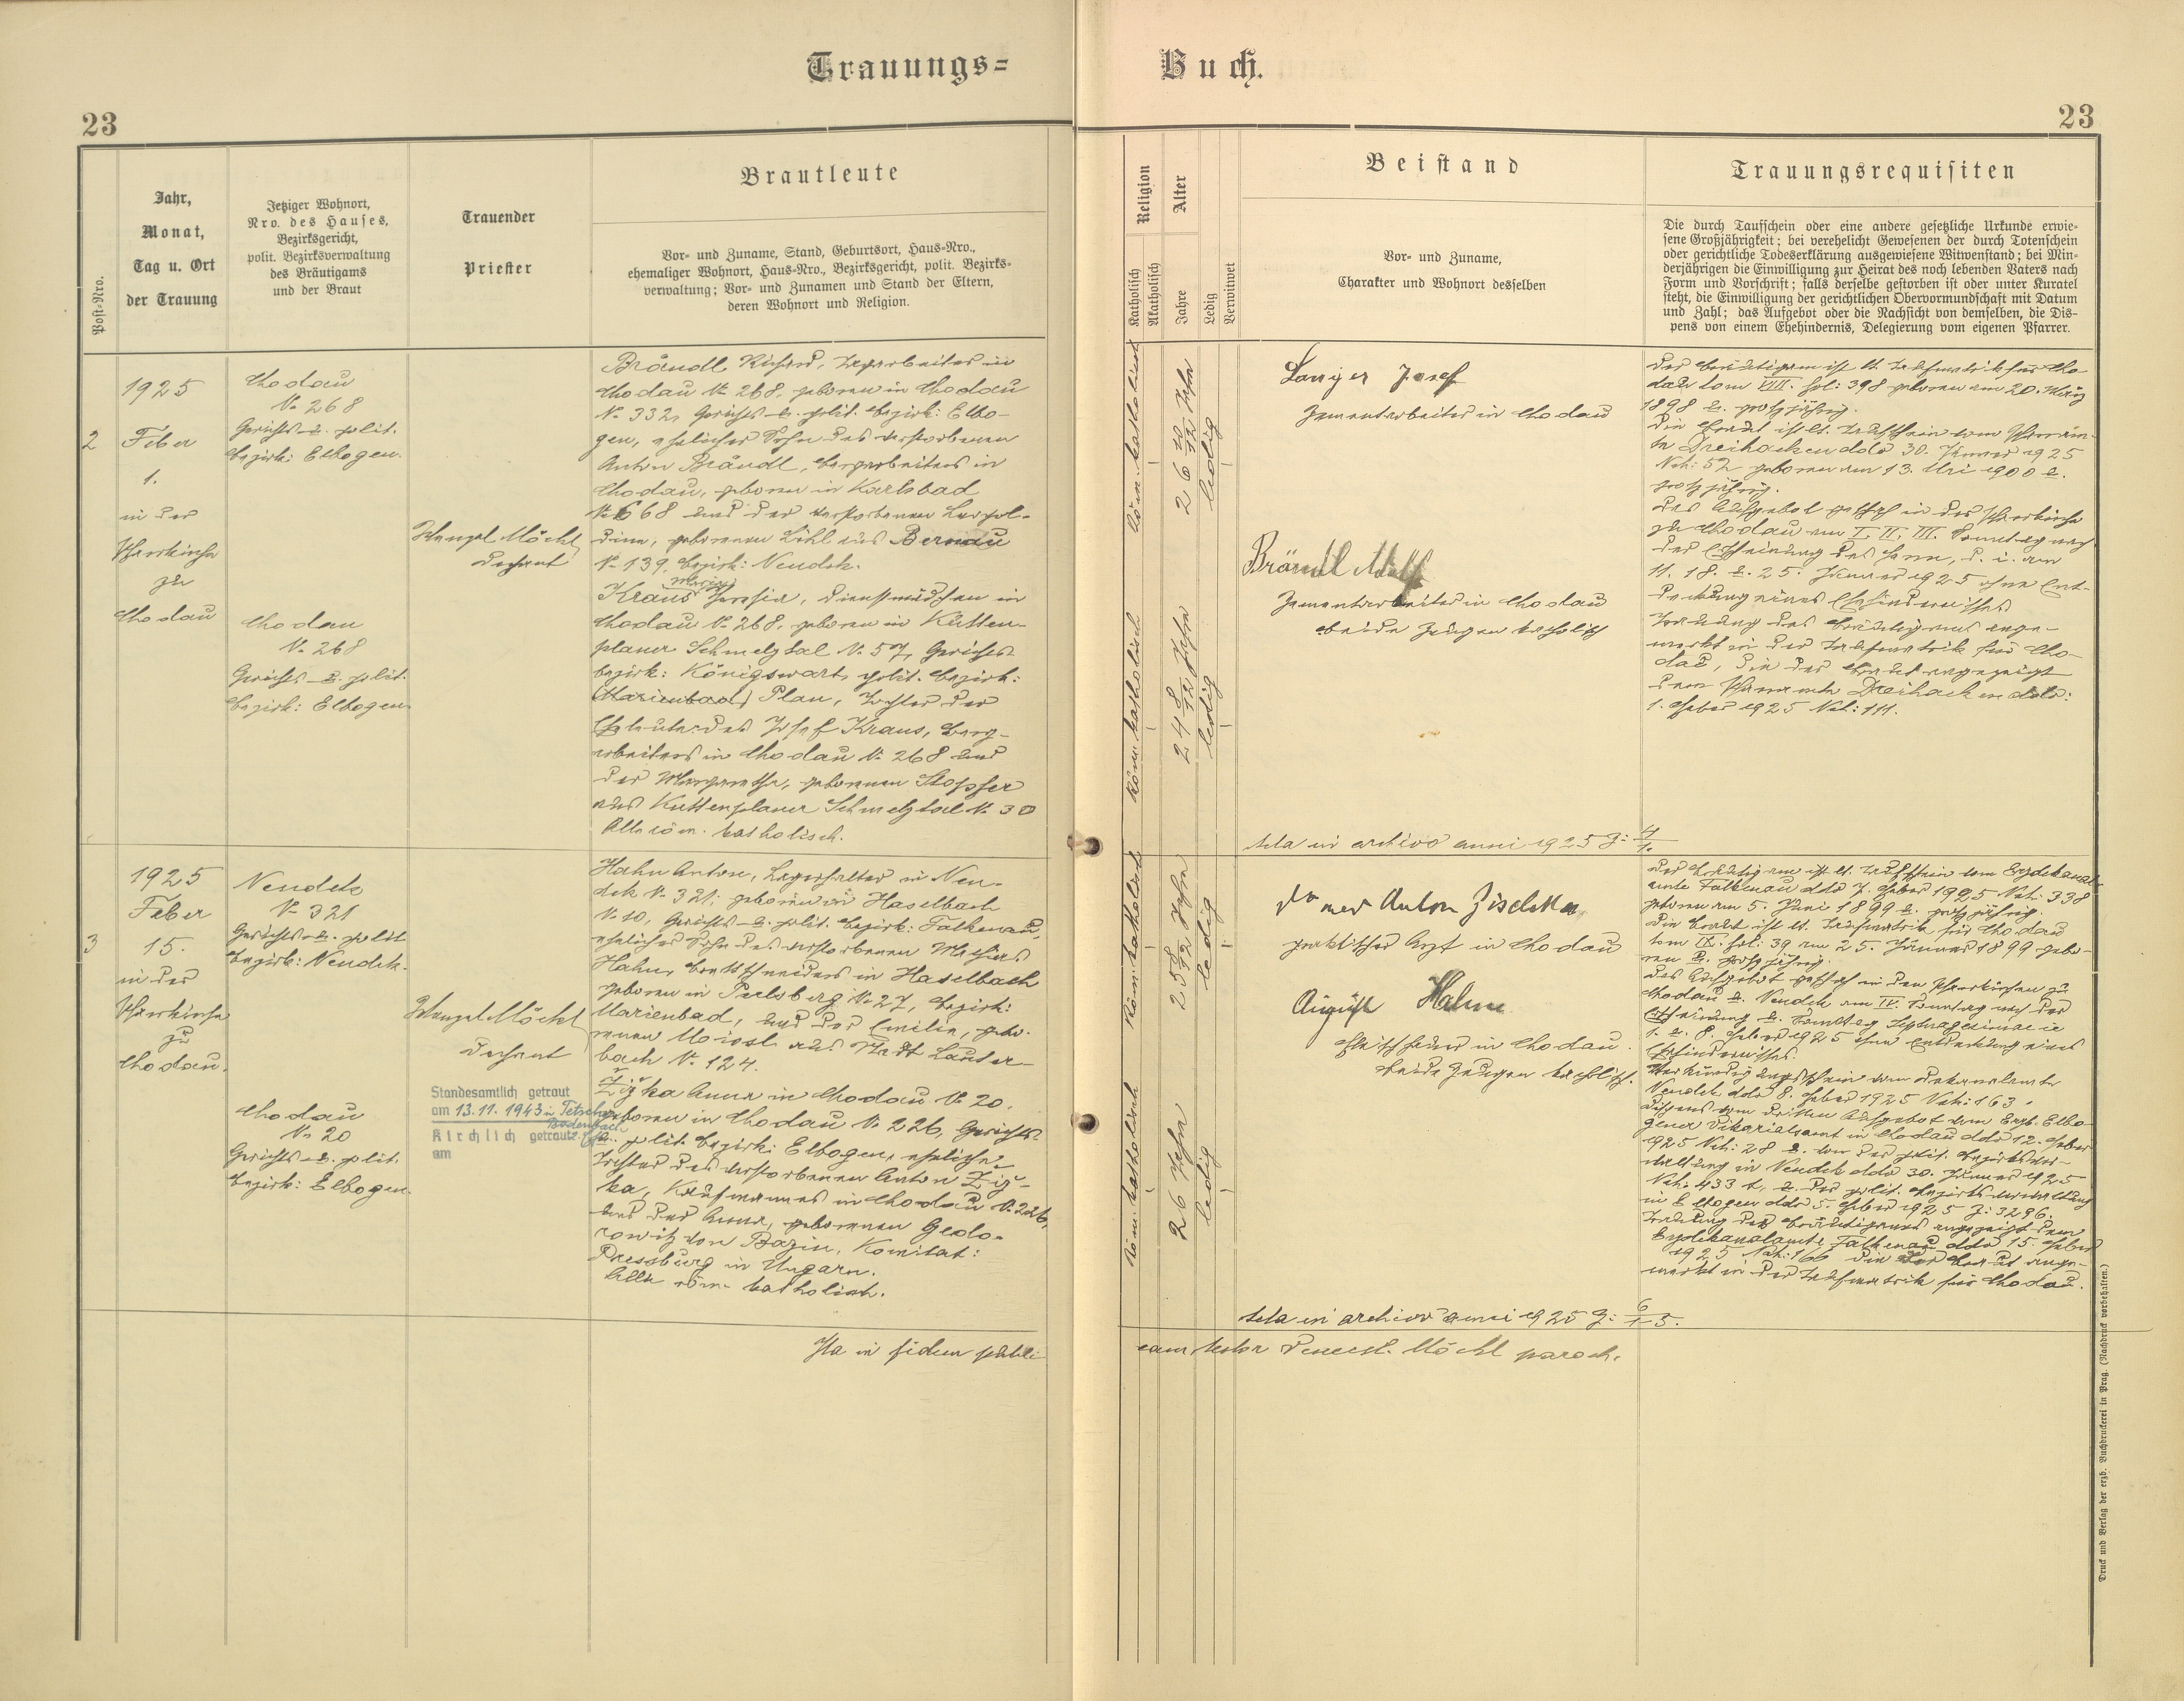 Trauungs=
Buch.
23
23
Post-Nro.
Jahr,
Monat,
Tag u. Ort
der Trauung
Jetziger Wohnort,
Nro. des Hauses,
Bezirksgericht,
polit. Bezirksverwaltung
des Bräutigams
und der Braut
Trauender
Priester
Brautleute
Vor- und Zuname, Stand, Geburtsort, Haus-Nro.,
ehemaliger Wohnort, Haus-Nro., Bezirksgericht, polit. Bezirks-
verwaltung; Vor- und Zunamen und Stand der Eltern,
deren Wohnort und Religion.
Religion
Katholisch
Akatholisch
Alter
Jahre
Ledig
Verwitwet
Beistand
Vor- und Zuname,
Charakter und Wohnort desselben
Trauungsrequisiten
Die durch Taufschein oder eine andere gesetzliche Urkunde erwie-
sene Großjährigkeit; bei verehelicht Gewesenen der durch Totenschein
oder gerichtliche Todeserklärung ausgewiesene Witwenstand; bei Min-
derjährigen die Einwilligung zur Heirat des noch lebenden Vaters nach
Form und Vorschrift; falls derselbe gestorben ist oder unter Kuratel
steht, die Einwilligung der gerichtlichen Obervormundschaft mit Datum
und Zahl; das Aufgebot oder die Nachsicht von demselben, die Dis-
pens von einem Ehehindernis, Delegierung vom eigenen Pfarrer.
2
1925
Feber
1.
in der
Pfarrkirche
zu
Chodau
Chodau
N. 268
Gerichts- u. polit.
Bezirk: Elbogen.
Chodau
N. 268
Gerichts- u. polit.
Bezirk: Elbogen.
Wenzel Möckl
Dechant
Brändl Richard, Tagarbeiter in
Chodau N. 268, geboren in Chodau
N. 332, Gerichts- u. polit. Bezirk: Elbo-
gen, ehelicher Sohn des verstorbenen
Anton Brändl, Bergarbeiters in
Chodau, geboren in Karlsbad
N. 668 und der verstorbenen Leopol-
dine, geborenen Löhl aus Bernau
N. 139. Bezirk: Neudek.
Maria
Kraus Theresia, Dienstmädchen in
Chodau N. 268, geboren in Kutten-
planer Schmelztal N. 57, Gerichts-
bezirk: Königswart, polit. Bezirk:
(Marienbad) Plan, Tochter der
Eheleute des Josef Kraus, Berg-
arbeiters in Chodau N. 268 und
der Margaretha, geborenen Stopfer
aus Kuttenplaner Schmelztal N. 30
Alle röm. katholisch.
röm. katholisch
26 10/12 Jahre
ledig
röm. katholisch
24 8/12 Jahre
ledig
Langer Josef
Zementarbeiter in Chodau
Brändl Adolf
Zementarbeiter in Chodau
beide Zeugen katholisch
Acta in archivo anni 1925 G: 4/1.
Der Bräutigam ist lt. Taufmatrik für Cho-
dau tom VIII. fol: 398 geboren am 20. März
1898 u. großjährig.
Die Braut ist lt. Taufschein vom Pfarram-
te Dreihacken ddo 30. Jänner 1925
Nch: 52 geboren am 13. Mai 1900 u.
großjährig.
Das Aufgebot geschah in der Pfarrkirche
zu Chodau am I. II. III. Sonntag nach
der Erscheinung des Herrn, d. i. am
11. 18. u. 25. Jänner 1925 ohne Ent-
deckung eines Ehehindernisses
Trauung des Bräutigams ange-
merkt in der Taufmatrik für Cho-
dau, die der Braut angezeigt
dem Pfarramte Dreihacken ddo:
1. Feber 1925 Nch: 111.
3
1925
Feber
15.
in der
Pfarrkirche
zu
Chodau.
Neudek
N. 321
Gerichts- u. polit
Bezirk: Neudek.
Chodau
N. 20
Gerichts- u. polit.
Bezirk: Elbogen.
Wenzel Möckl
Dechant
Standesamtlich getraut
am 13.11.1943 in Tetschen
Bodenbach
Kirchlich getraut
am
Hahn Anton, Lagerhalter in Neu-
dek N. 321, geboren in Haselbach
N. 10, Gerichts- u. polit. Bezirk: Falkenau,
ehelicher Sohn des verstorbenen Mathias
Hahn, Brettschneiders in Haselbach
geboren in Perlsberg N. 27, Bezirk:
Marienbad, und der Emilie, gebo-
renen Moissl aus Stadt Lauter-
bach N. 124.
Žižka Anna in Chodau N. 20.
geboren in Chodau N. 226, Gerichts-
u. polit. Bezirk: Elbogen, eheliche
Tochter des verstorbenen Anton Žiž-
ka, Kaufmannes in Chodau N. 226,
und der Anna, geborenen Gedo-
rowitz von Bazin, Komitat:
Pressburg in Ungarn.
Alle röm. katholisch.
röm. katholisch
25 8/12 Jahre
ledig
röm. katholisch
26 Jahre
ledig
Dr med Anton Zischka,
praktischer Arzt in Chodau
August Hahn
in Chodau.
beide Zeugen katholisch.
Acta in archivo anni 1925 G: 6/1-5.
Der Bräutigam ist lt. Taufschein vom Erzdekanal-
amte Falkenau ddo 7. Feber 1925 Nch: 338
geboren am 5. Juni 1899 u. großjährig.
Die Braut ist lt. Taufmatrik für Chodau
tom IX. fol: 39 am 25. Jänner 1899 gebo-
ren u. großjährig.
Das Aufgebot geschah in den Pfarrkirchen zu
Chodau u. Neudek am IV. Sonntag nach der
Erscheinung u. Sonntag Septuagesimae i. e
1. u. 8. Feber 1925 ohne Entdeckung eines
Ehehindernisses.
Verkündigungsschein vom Dekanalamte
Neudek ddo 8. Feber 1925 Nch: 163.
Dispens vom dritten Aufgebot vom Erzb. Elbo-
gener Vikariatsamt in Chodau ddo 12. Feber
1925 Nch: 28 u. von der polit. Bezirksver-
waltung in Neudek ddo 30. Jänner 1925
Nch: 433 u. der polit. Bezirksverwaltung
in Elbogen ddo 5. Feber 1925 Z: 3296.
Trauung des Bräutigams angezeigt dem
Erzdekanalamte Falkenau ddo 15. Feber
1925 Nch: 166 die der Braut ange-
merkt in der Taufmatrik für Chodau.
Ita in fidem publi-
cam testor Vencesl. Möckl paroch.
Druck und Verlag der erzb. Buchdruckerei in Prag. (Nachdruck vorbehalten.)